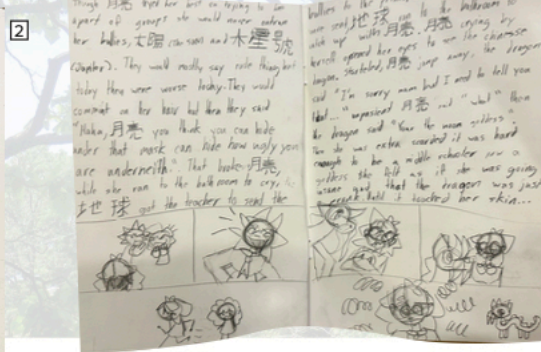 2
Though 月亮 tried her best on trying to be
apart of groups she would never outrun
her bullies, 太陽 (the sun) and 木星號
(Jupiter). They would mostly say rude things but
today they were worse today. They would
comment on her hair but then they said
"Haha, 月亮 you think you can hide
under that mask can hide how ugly you
are underneith". That broke 月亮,
while she ran to the bathroom to cry,
地球 got the teacher to send the
bullies to the
were sent 地球 ran to the bathroom to
catch up with 月亮. 月亮 crying by
herself opened her eyes to see the chinese
dragon, startled, 月亮 jump away. the dragon
said "I'm sorry mam but I need to tell you
that... unpatient 月亮 said "what" then
the dragon said "Your the moon goddess".
she was extra scared it was hard
enough to be a middle schooler now a
goddess she felt as if she was going
insane and that the dragon was just
a prank until it touched her skin...